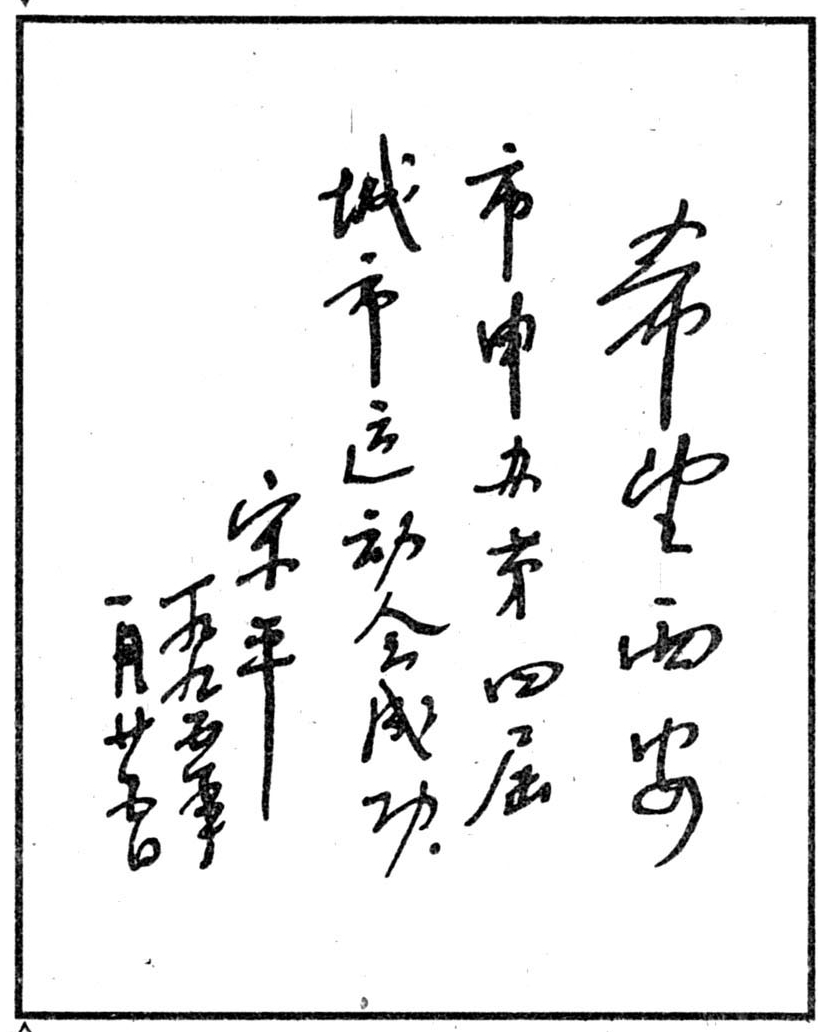 希望西安
市申办第四届
城市运动会成功.
宋平
一九九五年
一月廿五日